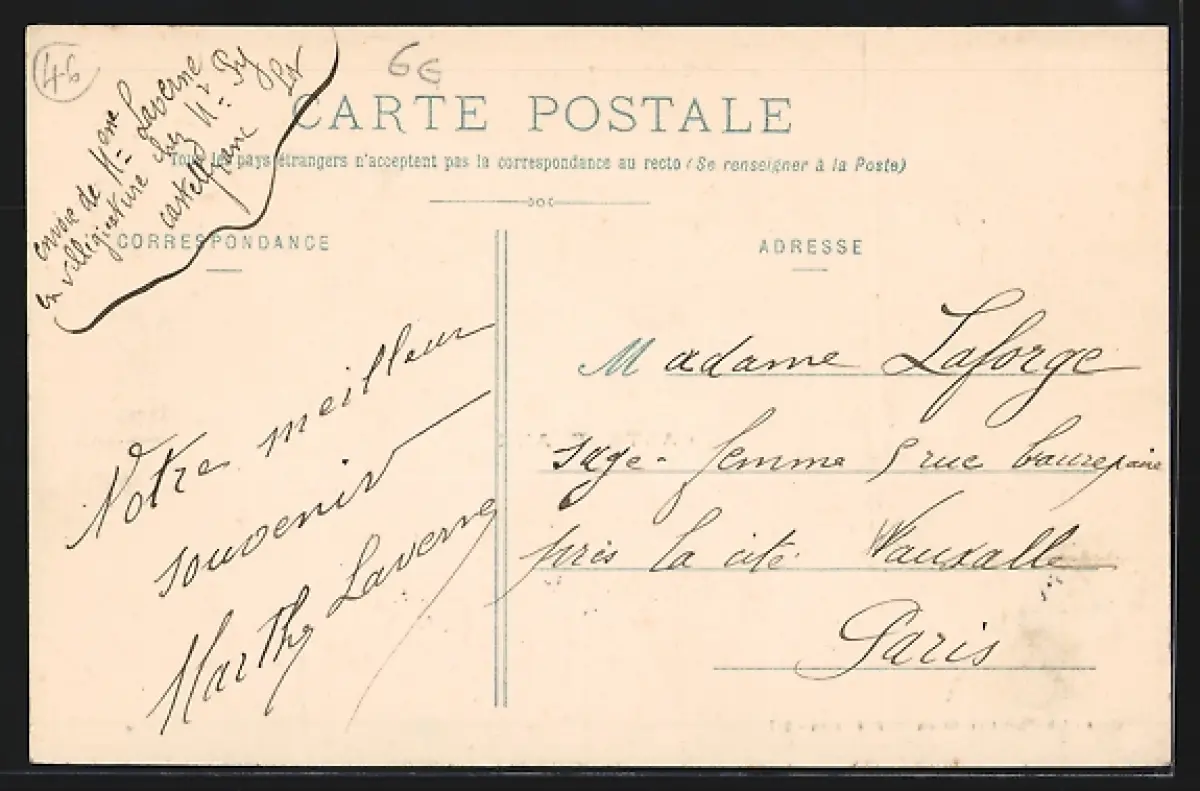 46
6€
envoie de Mme Laverne
en villégiature chez Mr
castelfranc
Lot
CARTE POSTALE
Tous les pays étrangers n'acceptent pas la correspondance au recto (Se renseigner à la Poste)
CORRESPONDANCE
Notre meilleur
souvenir
Marthe Laverne
ADRESSE
Madame Laforge
sage-femme 5 rue baurepaire
près la cité Wauxalle
Paris